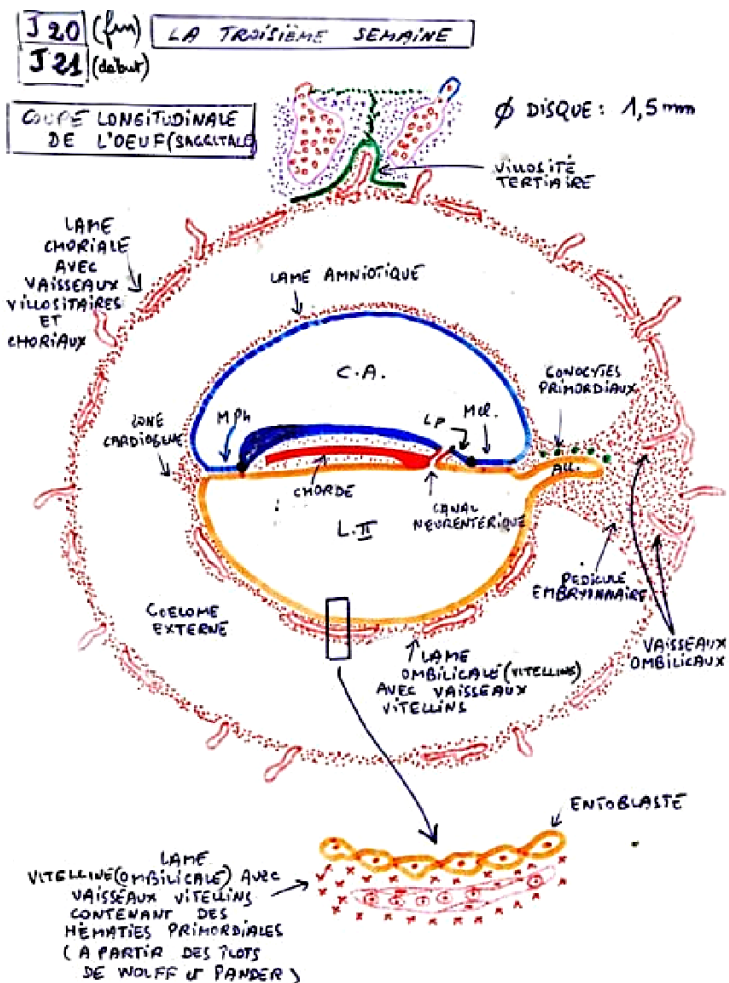 J20 (fin) LA TROISIÈME SEMAINE
J21 (début)
COUPE LONGITUDINALE
DE L'OEUF (SAGGITALE)
Φ DISQUE : 1,5 mm
VILLOSITÉ
TERTIAIRE
LAME
CHORIALE
AVEC
VAISSEAUX
VILLOSITAIRES
ET
CHORIAUX
LAME AMNIOTIQUE
C.A.
GONOCYTES
PRIMORDIAUX
ZONE
CARDIOGENE
MPh
LP
MCl.
ALL.
CHORDE
CANAL
NEURENTÉRIQUE
L.II
PEDICULE
EMBRYONNAIRE
COELOME
EXTERNE
VAISSEAUX
OMBILICAUX
LAME
OMBILICALE (VITELLINS)
AVEC VAISSEAUX
VITELLINS
ENTOBLASTE
LAME
VITELLINE (OMBILICALE) AVEC
VAISSEAUX VITELLINS
CONTENANT DES
HÉMATIES PRIMORDIALES
(A PARTIR DES ÎLOTS
DE WOLFF et PANDER)